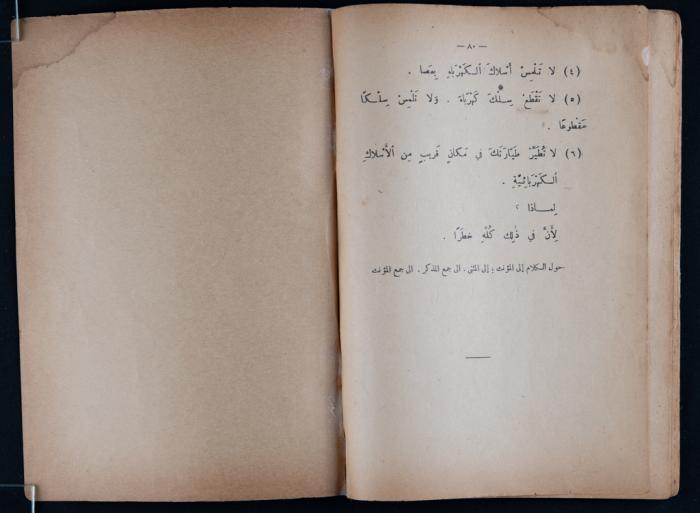 — ٨٠ —
(٤) لا تَلْمِسْ أَسْلاكَ الكَهْرَباءِ بِعَصا .
(٥) لا تَقْطَعْ سِلْكَ كَهْرَباءَ . وَلا تَلْمِسْ سِلْكًا
مَقْطوعًا .
(٦) لا تُطَيِّرْ طَيّارَتَكَ في مَكانٍ قَريبٍ مِن الأَسْلاكِ
الكَهْرَبائِيَّةِ .
لِماذا ؟
لِأَنَّ في ذٰلِك كُلِّهِ خطَرًا .
حول الكلام إلى المؤنث ؛ إلى المثنى . الى جمع المذكر . الى جمع المؤنث